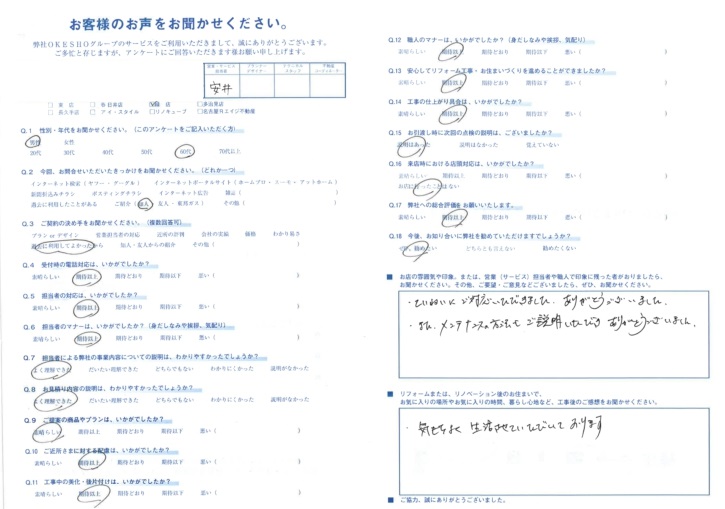 お客様のお声をお聞かせください。
弊社OKESHOグループのサービスをご利用いただきまして、誠にありがとうございます。
ご多忙と存じますが、アンケートにご回答いただきます様お願い申し上げます。
安井
□ 本 店 □ 春日井店 店 □ 多治見店
□ 長久手店 □ アイ・スタイル □リノキューブ □名古屋Rエイジ不動産
Q.1 性別・年代をお聞かせください。(このアンケートをご記入いただく方)
男性 女性
20代 30代 40代 50代 60代 70代以上
Q.2 今回、お問合せいただいたきっかけをお聞かせください。(どれか一つ)
インターネット検索(ヤフー・グーグル) インターネットポータルサイト(ホームプロ・ニーモ・アットホーム)
新聞折込みチラシ ポスティングチラシ インターネット広告 雑誌( )
過去に利用したことがある ご紹介(知人 友人・親族ガ) その他( )
Q.3 ご契約の決め手をお聞かせください。(複数回答可)
プランorデザイン 営業担当者の対応 近所の評判 会社の実績 価格 わかり易さ
過去に利用してよかったから 知人・友人からの紹介 その他( )
Q.4 受付時の電話対応は、いかがでしたか?
素晴らしい 期待以上 期待どおり 期待以下 悪い( )
Q.5 担当者の対応は、いかがでしたか?
素晴らしい 期待以上 期待どおり 期待以下 悪い( )
Q.6 担当者のマナーは、いかがでしたか?(身だしなみや挨拶、気配り)
素晴らしい 期待以上 期待どおり 期待以下 悪い( )
Q.7 担当者による弊社の事業内容についての説明は、わかりやすかったでしょうか?
よく理解できた だいたい理解できた どちらでもない わかりにくかった 説明がなかった
Q.8 お見積り内容の説明は、わかりやすかったでしょうか?
よく理解できた だいたい理解できた どちらでもない わかりにくかった 説明がなかった
Q.9 ご提案の商品やプランは、いかがでしたか?
素晴らしい 期待以上 期待どおり 期待以下 悪い( )
Q.10 ご近所さまに対する配慮は、いかがでしたか?
素晴らしい 期待以上 期待どおり 期待以下 悪い( )
Q.11 工事中の美化・後片付けは、いかがでしたか?
素晴らしい 期待以上 期待どおり 期待以下 悪い( )
Q.12 職人のマナーは、いかがでしたか?(身だしなみや挨拶、気配り)
素晴らしい 期待以上 期待どおり 期待以下 悪い( )
Q.13 安心してリフォーム工事・お住まいづくりを進めることができましたか?
素晴らしい 期待以上 期待どおり 期待以下 悪い( )
Q.14 工事の仕上がり具合は、いかがでしたか?
素晴らしい 期待以上 期待どおり 期待以下 悪い( )
Q.15 お引渡し時に次回の点検の説明は、ございましたか?
説明はあった 説明はなかった 覚えていない
Q.16 来店時における店頭対応は、いかがでしたか?
素晴らしい 期待以上 期待どおり 期待以下 悪い( )
お店に行ったことはない
Q.17 弊社への総合評価をお願いいたします。
素晴らしい 期待以上 期待どおり 期待以下 悪い( )
Q.18 今後、お知り合いに弊社を勧めていただけますでしょうか?
ぜひ、勧めたい どちらとも言えない 勧めたくない
■ お店の雰囲気や印象、または、営業(サービス)担当者や職人で印象に残った者がおりましたら、
お聞かせください。その他、ご要望・ご意見などございましたら、ぜひ、お聞かせください。
・ていねいにご対応いただきました。ありがとうございました。
・また、メンテナンスの方法もご説明いただき ありがとうございました。
■ リフォームまたは、リノベーション後のお住まいで、
お気に入りの場所やお気に入りの時間、暮らし心地など、工事後のご感想をお聞かせください。
・気持ちよく 生活させていただいております
■ ご協力、誠にありがとうございました。